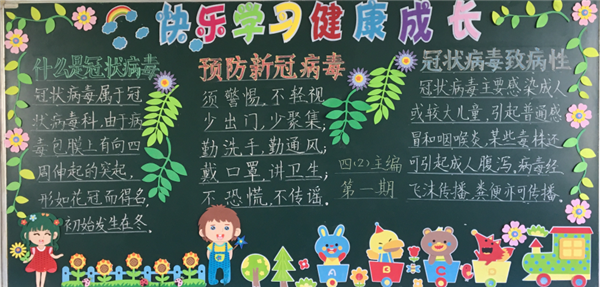 快乐学习健康成长
什么是冠状病毒
冠状病毒属于冠
状病毒科,由于病
毒包膜上有向四
周伸起的突起,
形如花冠而得名,
初始发生在冬。
预防新冠病毒
须警惕,不轻视,
少出门,少聚集;
勤洗手,勤通风;
戴口罩,讲卫生;
不恐慌,不传谣。
四(2)主编
第一期
冠状病毒致病性
冠状病毒主要感染成人
或较大儿童,引起普通感
冒和咽喉炎,某些毒株还
可引起成人腹泻,病毒经
飞沫传播,粪便亦可传播。
A
B
C
D